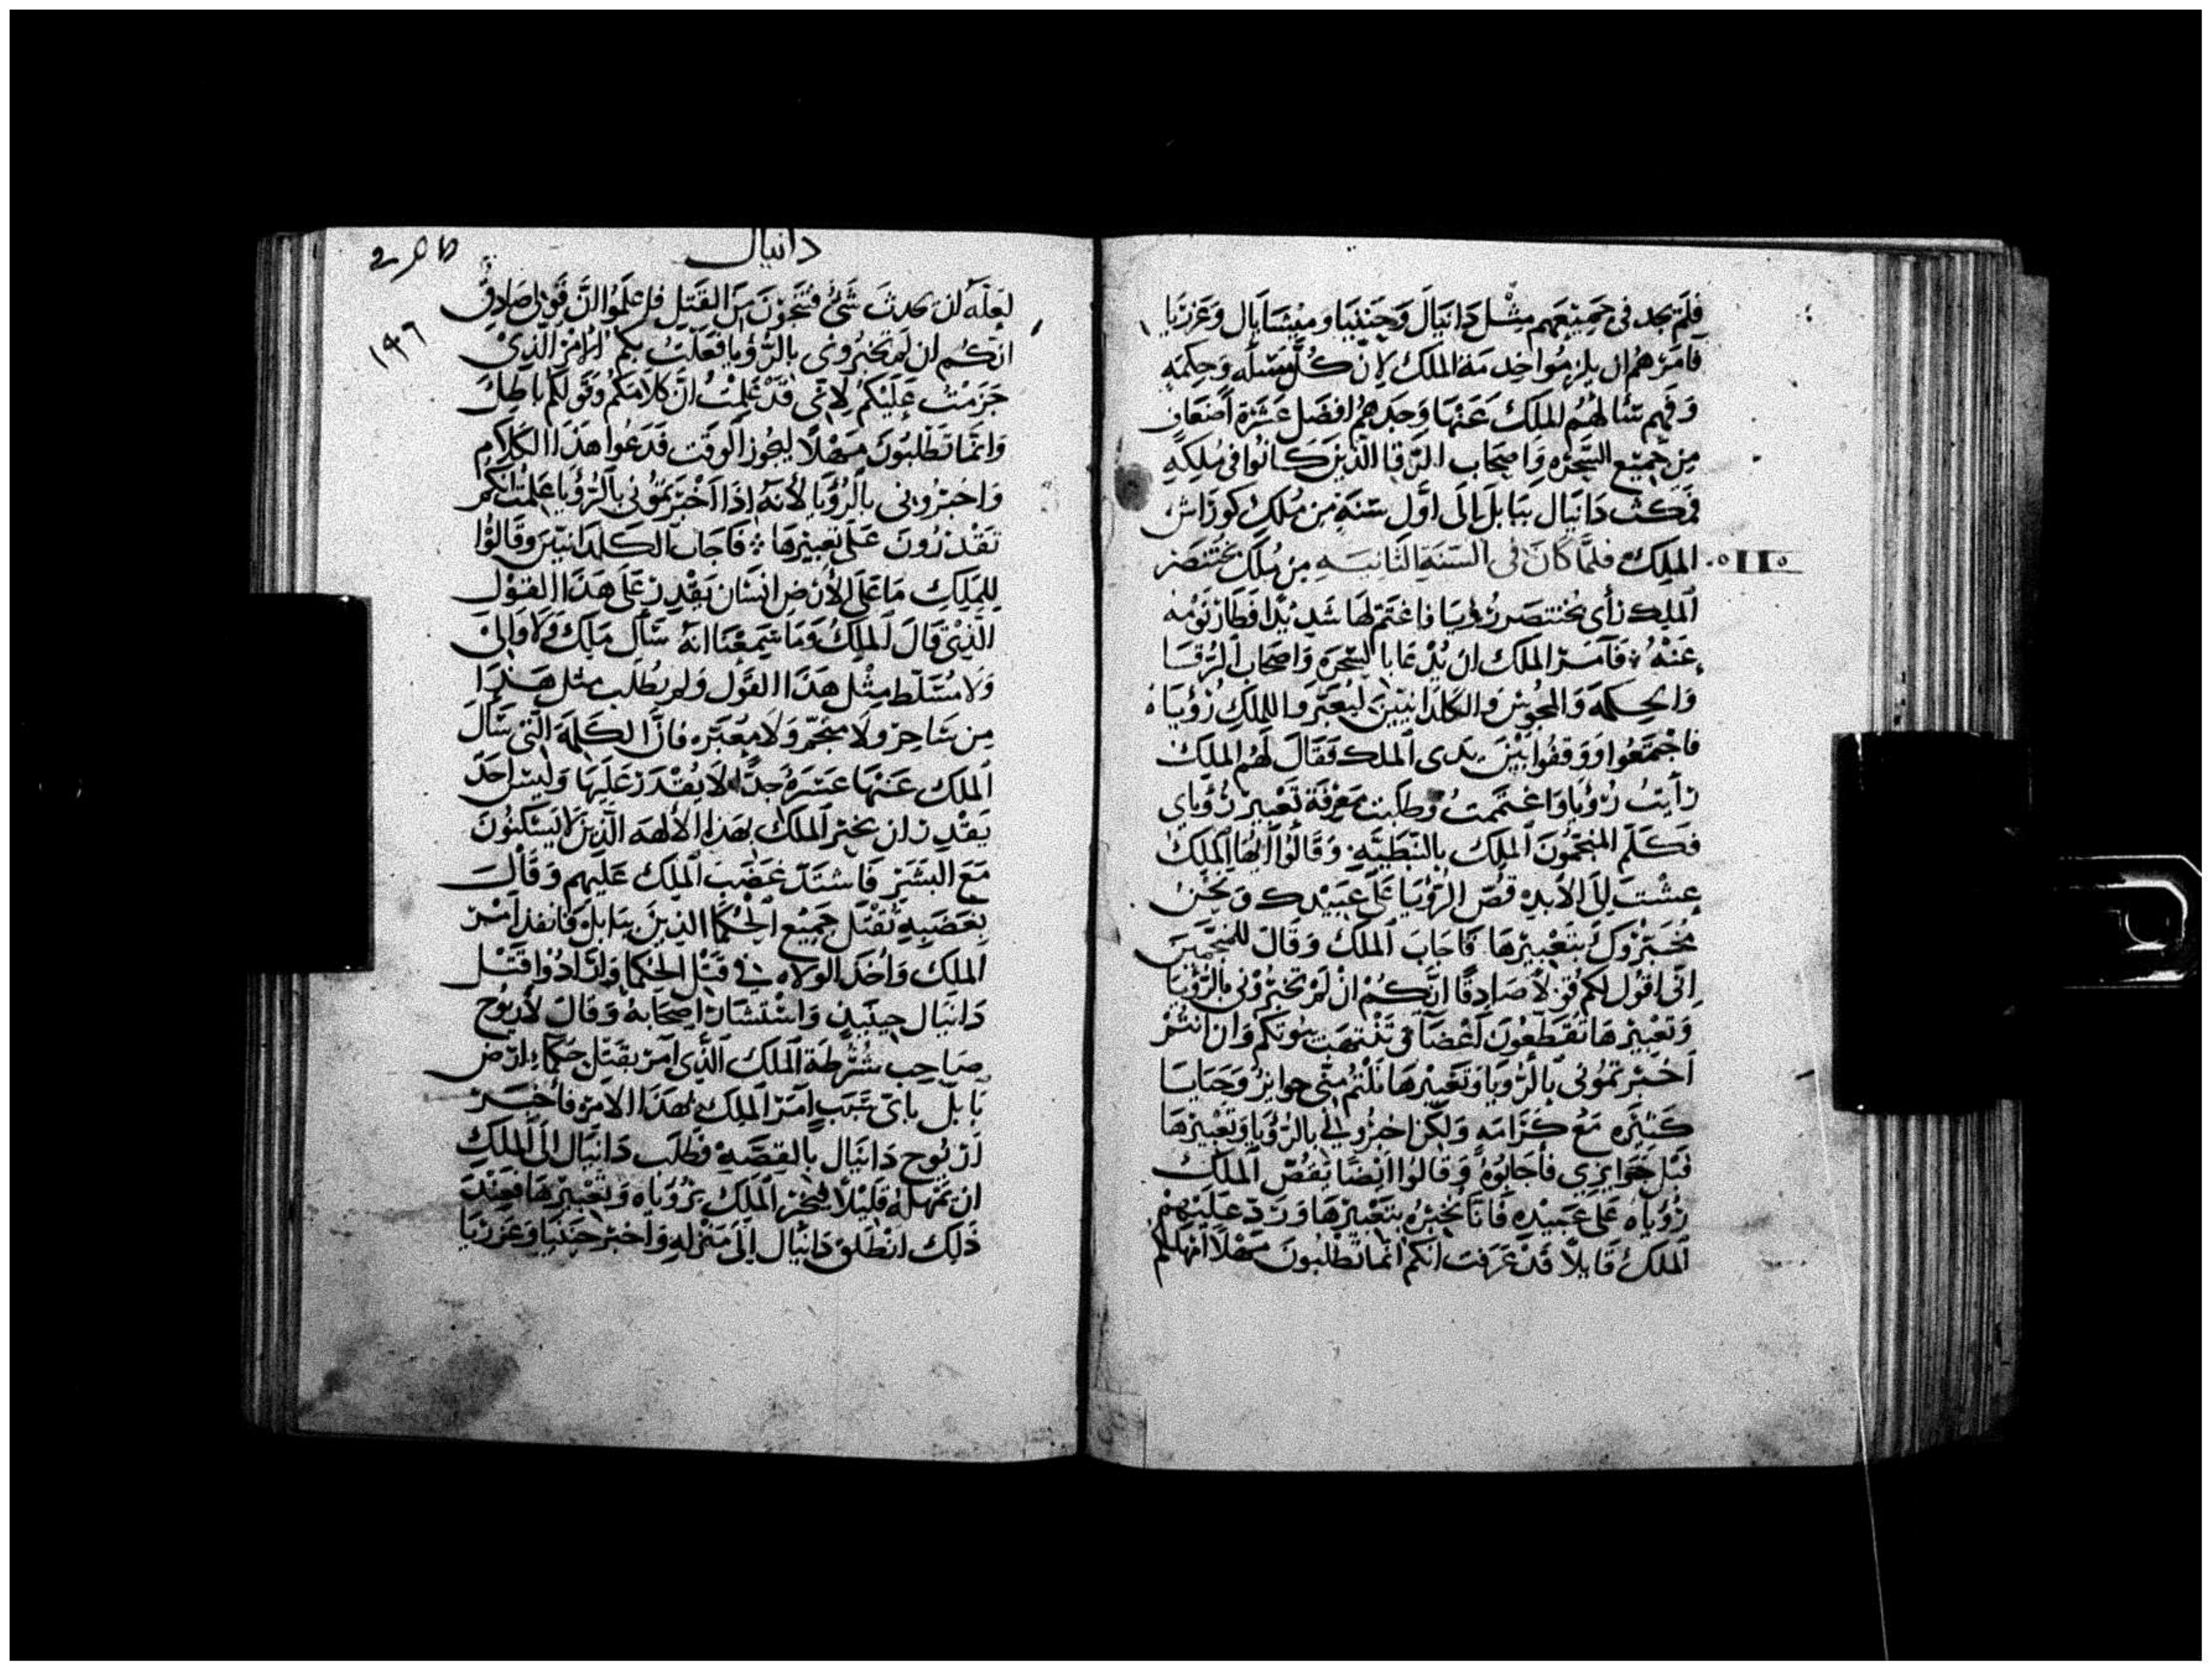 فلم يجد فى جميعهم مثل دَانيَالَ وَحَنَنيَا وميشايال وَعَزريَا
فامرهم ان يلزموا خدمة الملك لان كل مسئله وَحِكمَه
وَفهم سَألهُم الملك عَنهَا وَجدهم افضل عَشرَة اَضعَاف
مِن جميع السحره وَاصحَاب الرقا الذينَ كَانوا فى مُلكِهِ
فمَكث دَانيَال ببَابل الَى اوَّل سَنةٍ من مُلكِ كورَاش
الملِك فلمَّا كانَ فى السَنةِ الثانيَهِ مِن مُلك بختنصر
الملِك رَأى بُختنصَر رُؤيَا فاغتم لهَا شديدًا وَطَار نَومُه
عَنهُ فَامَر الملك ان يُدعَا بالسَحرَه وَاصحَاب الرُقَا
وَالحكمَه وَالمجُوس وَالكلدَانيينَ ليُعَبّروا للملكِ رُؤيَاهُ
فاجتمَعُوا وَوَقفُوا بَينَ يدَى الملك فقَالَ لهُم الملك
رَأيتُ رُؤيَا وَاغتممتُ وَطلبت مَعرفَة تَعبير رُؤيَاى
فكلّم المنَجمُونَ الملِك بالنبَطيّه وَقالُوا ايّهَا الملِكُ
عِشتَ الىَ الاَبد قُصّ الرؤيَا عَلى عَبيدك وَنحنُ
مُخبروكَ بتَعبيرهَا فَاجَابَ الملك وَقَالَ للمنَجمينَ
انى اقولُ لكم قولاً صَادقًا انّكم ان لَم تخبرُونى بالرؤيَا
وَتعبيرهَا تُقَطعُونَ اَعْضَآءً وَتنتهَب بيُوتكم وَان انتُمْ
اَخبرتمُونى بالرُؤيَا وَتَعبيرهَا نلتُم منّى جوايز وَحَبَايَا
كثيره مَع كَرَامَه وَلكن اخبرُونى بالرؤيَا وَتعبيرهَا
فنل جَوايزى فأجَابُوهُ وَقالوُا ايضًا يقصُ الملِكُ
رُؤيَاه عَلى عَبيدهِ فانَا نُخبرُه بتَعبيرهَا وَرَدّ عَليهِم
الملكُ قَايلاً قَد عَرَفت انكم انمَا تطلبُونَ مَهلاً امهلكُم
دانيال
١٩٦
لَعَلهُ ان يحدثَ شَىٌ فتنجوْنَ منَ القتلِ فاعلَمُوا انَّ قَولى صَادِقٌ
انكُم ان لَم تخبرُونى بالرُؤيَا فعَلتُ بكم الامْر الّذِىْ
جَزمتُ عَليكم لانى قَدْ عَلِمتُ انّ كلاَمَكم وَقَولكم باطِلٌ
وَانمَا تطلبُونَ مَهلاً ليجُوز الوقت فَدَعوا هَذا الكلَام
وَاخبرُونى بالرُؤيَا لأنهُ اذا اَخبرتمُونى بالرُؤيَا عَلمتُ انكم
تقدرُونَ عَلى تعبيرهَا فاَجَاب الكلدانيينَ وقَالوُا
للمَلِكِ مَا عَلَى الأرْضِ انسَان يَقْدِر عَلى هَذا القَوْل
الّذِى قَالَ الملِكُ وَمَا سَمعْنَا انهُ سَأل مَلِك وَلاَ وَالِى
وَلا مُتسَلّط مِثْل هَذا القَول وَلم يُطلَب مثل هَذا
مِن سَاحِر وَلاَ منَجّم وَلا مُعَبّر فانَّ الكلمَة الّتى سَألَ
الملك عَنهَا عَسرَه جدًّا لاَ يُقدَر عَليهَا وَليسَ احَد
يَقدر ان يخبر الملك بهَذا الاَّ الالهه الّذينَ لاَ يَسكنُونَ
مَعَ البَشَر فاشتَدّ غَضَب الملِك عَليهم وَقَالَ
بغَضَبِهِ تُقتَل جَميْع الحُكمَا الذينَ ببَابل فانفد اَمْر
الملِك وَاخذ الولاه فى قتل الحكمَا وَارَادُوا قَتل
دَانيَال حينَيذٍ وَاستشَار اصحَابهُ وَقالَ لأريُوح
صَاحِب شُرْطَة الملك الّذى امَر بقَتل حكمَاء اَرض
بَابل باىّ سَبَب اَمَر الملك بهَذا الامر فأخبَر
اَريُوح دَانيَال بالقصَهِ فطلَب دَانيَال الَى الملِك
ان يمهلهُ قليلاً ليخبر الملِك برُؤيَاه وَتعبيرهَا فعند
ذلك انطَلق دَانيَال الَى مَنزلهِ وَاخبر حَننيَا وَعَزَريَا